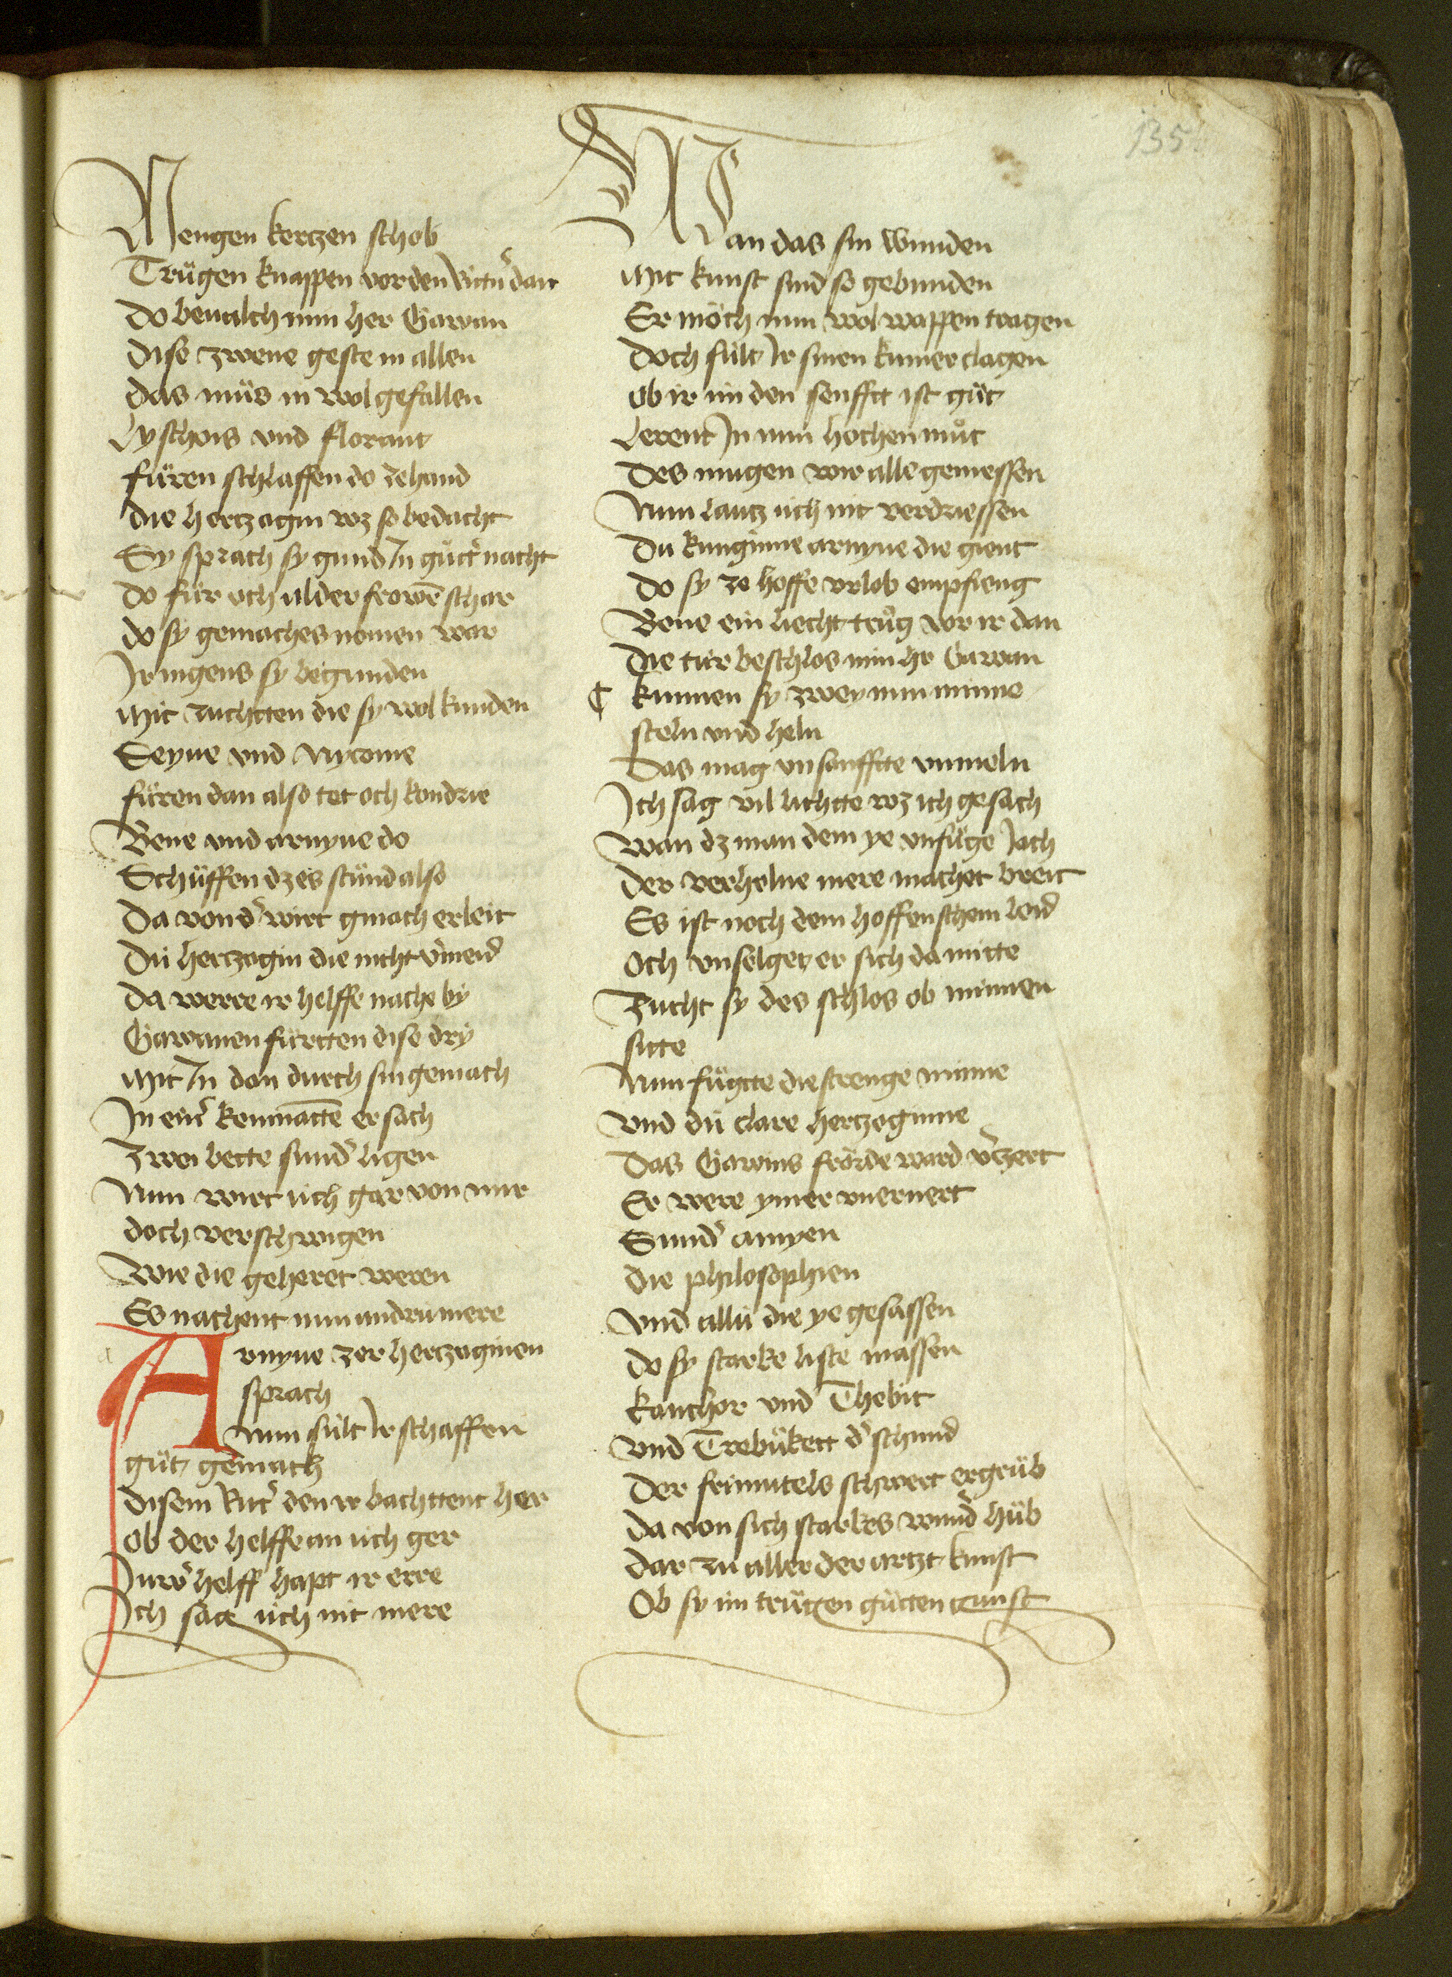 135
Mengen kertzen schob
Trůgen knappen vor den Rittᵉn dan
Do beualch min her Gawan
Dise zwene geste in allen
Das můs in wol gefallen
Lyschois vnd florant
fůren schlaffen do zehand
Die hertzogin wz so bedacht
Sy sprach sy gund In gůtᵉ nacht
Do fůr och alder frowē schar
do sy gemaches nomen war
Ir nigens sy begunden
Mit zuchtten die sy wol kunden
Seyne vnd Nytonie
fůren dan also tet och kondrie
Bene vnd arnyue do
Schůffen dz es stůnd also
Da von dᵉ wirt gmach erleit
Dü hertzogin die nicht vᵉmeid
Da werre ir helffe nache by
Gawanen fůrtten dise dry
Mit In dan durch sin gemach
In einᵉ kemnattē er sach
Zwei bette sundᵉ ligen
Nun wirt üch gar von mir
doch verschwigen
Wie die geheret weren
Es nachent nun andru mere
Arnyue zer hertzoginen
sprach
Nun sült Ir schaffen
gůt gemach
disem Ritᵉ den ir bachttent her
Ob der helffe an üch ger
Iuwᵉ helff hapt ir erre
Ich sag üch nit mere
Wan das sin wunden
Mit kunst sind so gebunden
Er möch nun wol wappen tragen
Doch sült Ir sinen kumer clagen
Ob ir im den senfftt ist gůt
Lerent In nun hochen můt
Des mugen wir alle geniessen
Nun lautz üch nit verdriessen
Dü kunginne arnyue die gient
do sy ze hoffe vrlob empfieng
Bene ein liecht trůg vor ir dan
Die tür beschlos min hr Gawan
¶ kunnen sy zwey nun minne
steln vnd heln
Das mag vnsanffte vnmeln
Ich sag vil lichtte wz ich gesach
Wan dz man dem ye vnfůge Iach
Der verholne mere machet breit
Es ist noch dem hoffenschem leid
Och vnselget er sich da mitte
Zucht sy des schlos ob minnen
sitte
Nun fůgtte die strenge minne
Vnd dü clare hertzoginne
Das Gawins fröde ward vᵉzert
Er were ymer vnernert
Sundᵉ amyen
Die philosophien
Vnd allü die ye gesassen
Do sy starke liste massen
Kanchor vnd Thebit
Vnd Trebůkett dᵉ schmid
Der frimutels schwert ergrůb
Da von sich starkes wundᵉ hůb
Dar zu aller der artzt kunst
Ob sy im trůgen gůtten gunst